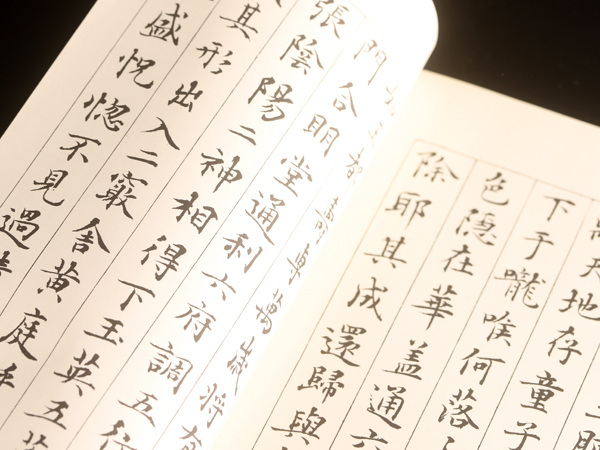 天地存童子
下于嚨喉何落
色隱在華蓋通六
除耶其成還歸與
壽專萬歲將有
門合明堂通利六府調五行
張陰陽二神相得下玉英五
其形出入二竅舍黃庭
盛恍惚不見過